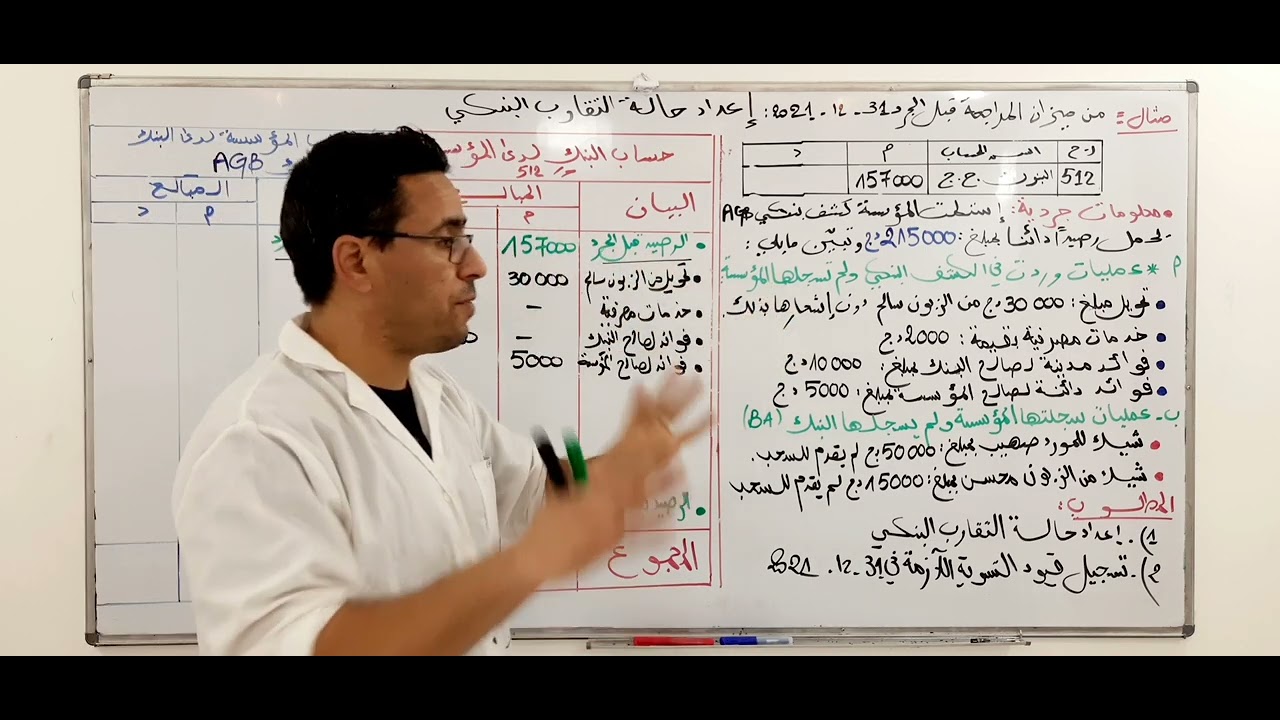 مثال: من ميزان المراجعة قبل الجرد 31-12-2021: إعداد حالة التقارب البنكي
ر.ح اسم الحساب م د
512 البنوك ح.ج 157000
• معلومات جردية: إستلمت المؤسسة كشف بنكي AGB
يحمل رصيدًا دائنًا بمبلغ: 215000 دج وتبيّن مايلي:
أ * عمليات وردت في الكشف البنكي ولم تسجلها المؤسسة:
• تحويل مبلغ: 30 000 دج من الزبون سالم دون إشعارها بذلك.
• خدمات مصرفية بقيمة: 2000 دج
• فوائد مدينة لصالح البنك بمبلغ: 10 000 دج
• فوائد دائنة لصالح المؤسسة بمبلغ: 5000 دج
ب- عمليات سجلتها المؤسسة ولم يسجلها البنك (BA)
• شيك للمورد صهيب بمبلغ: 50 000 دج لم يقدم للسحب.
• شيك من الزبون محسن بمبلغ: 15000 دج لم يقدم للسحب
المطلوب:
1)- إعداد حالة التقارب البنكي
2)- تسجيل قيود التسوية اللازمة في 31-12-2021
حساب البنك لدى المؤسسة
ح/512
البيان
م
• الرصيد قبل الجرد 157000
• تحويل من الزبون سالم 30 000
• خدمات مصرفية -
• فوائد لصالح البنك -
• فوائد لصالح المؤسسة 5000
• الرصيد
المجموع
المؤسسة لدى البنك
AGB
المبالغ
م د